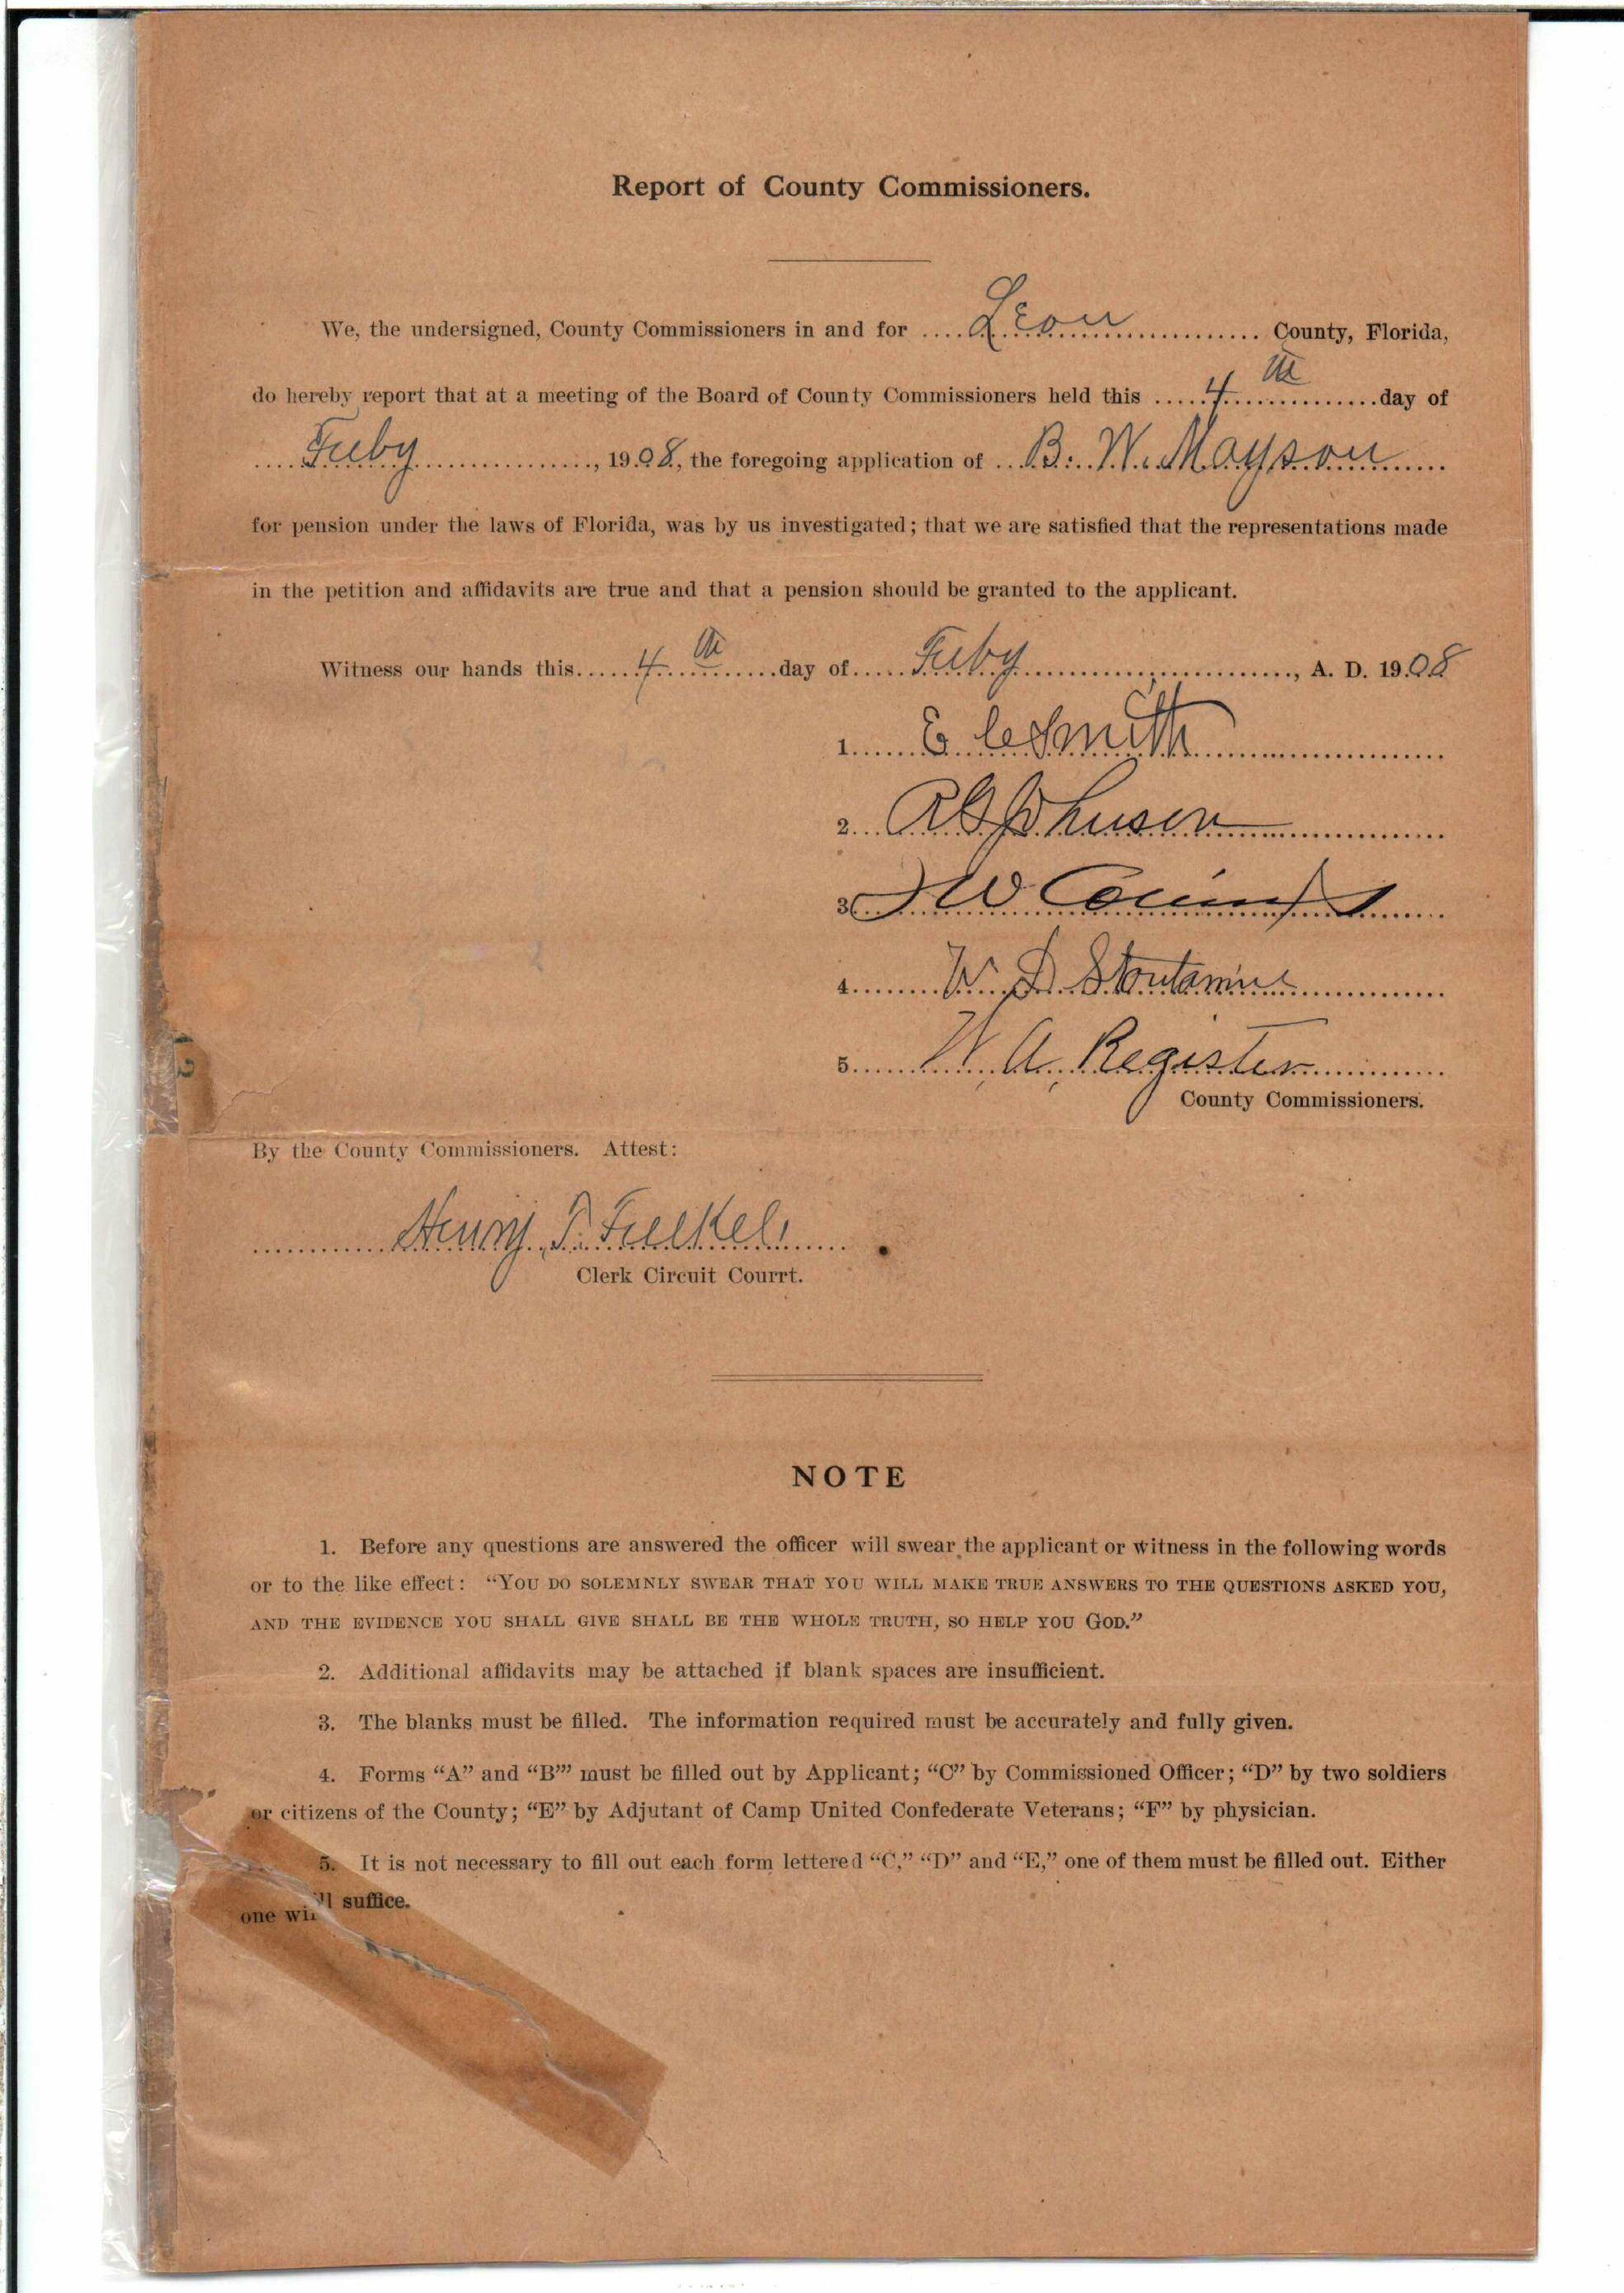 Report of County Commissioners.
We, the undersigned, County Commissioners in and for .... Leon .... County, Florida,
do hereby report that at a meeting of the Board of County Commissioners held this .... 4th .... day of
.... Feby ...., 1908., the foregoing application of ... B. W. Mayson ....
for pension under the laws of Florida, was by us investigated; that we are satisfied that the representations made
in the petition and affidavits are true and that a pension should be granted to the applicant.
Witness our hands this.... 4th ....day of.... Feby ...., A. D. 19.08
1...... E C Smith
2... R G Johnson
3... W
4...... W. D Stoutamire
5...... W. A. Register
County Commissioners.
By the County Commissioners. Attest:
Henry T. Felkel
Clerk Circuit Courrt.
NOTE
1. Before any questions are answered the officer will swear the applicant or witness in the following words
or to the like effect: “YOU DO SOLEMNLY SWEAR THAT YOU WILL MAKE TRUE ANSWERS TO THE QUESTIONS ASKED YOU,
AND THE EVIDENCE YOU SHALL GIVE SHALL BE THE WHOLE TRUTH, SO HELP YOU GOD.”
2. Additional affidavits may be attached if blank spaces are insufficient.
3. The blanks must be filled. The information required must be accurately and fully given.
4. Forms “A” and “B”’ must be filled out by Applicant; “C” by Commissioned Officer; “D” by two soldiers
or citizens of the County; “E” by Adjutant of Camp United Confederate Veterans; “F” by physician.
5. It is not necessary to fill out each form lettered “C,” “D” and “E,” one of them must be filled out. Either
one will suffice.